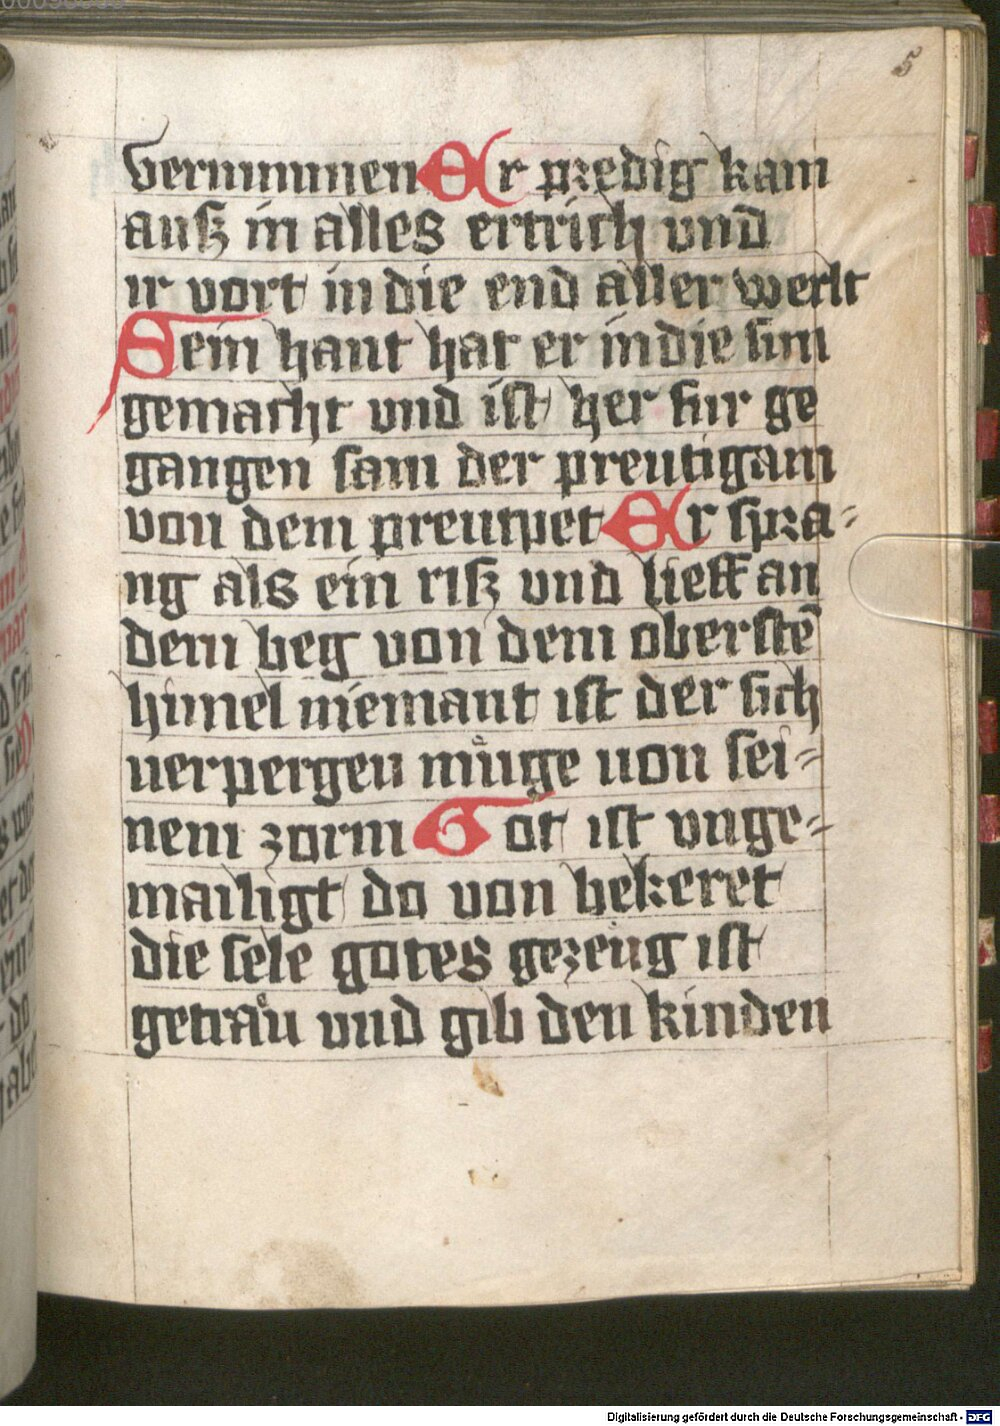 5
vernummen Er predig kam
ausz in alles ertrich vnd
ir vort in die end aller werlt
Sein haut hat er in die sun
gemacht vnd ist her fur ge
gangen sam der preutigam
von dem preutpet Er spra-
ng als ein risz vnd lieff an
dem beg von dem oberstē
himel niemant ist der sich
uerpergen muͦge uon sei-
nem zorm Got ist vnge-
mailigt do von bekeret
die sele gotes gezeug ist
getraͦu vnd gib den kinden
Digitalisierung gefördert durch die Deutsche Forschungsgemeinschaft - DFG